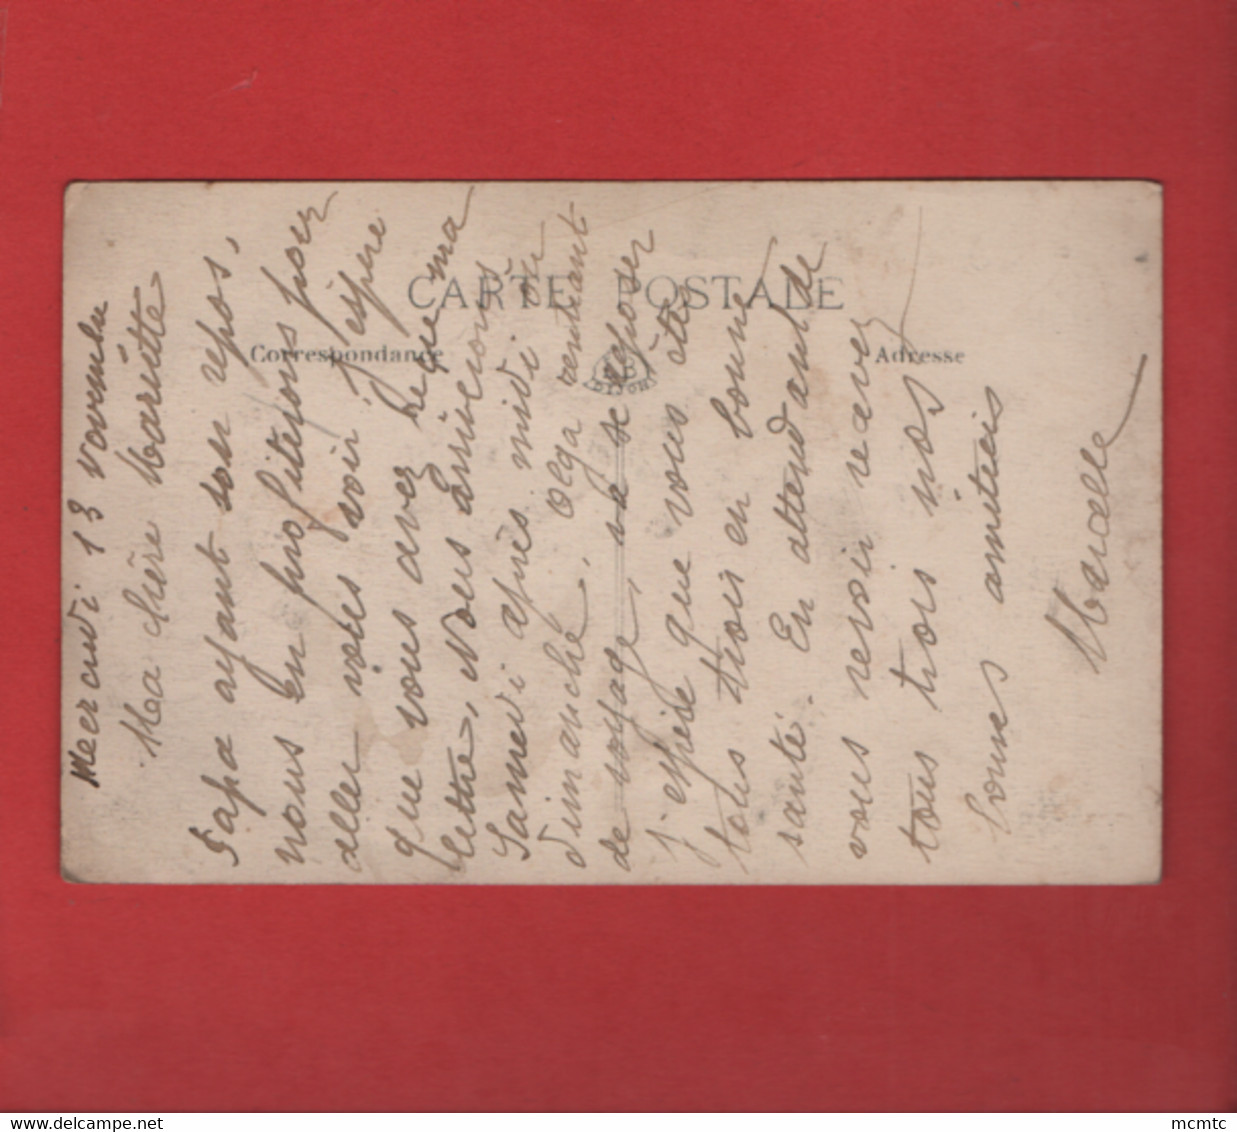 CARTE POSTALE
Correspondance
Adresse
DIJON
Mercredi 13 novembre
Ma chère Mariette
Papa ayant son repos,
nous en profiterons pour
aller vous voir j'espère
que vous avez reçu ma
lettre, Nous arriverons
Samedi après midi ou
dimanche, Olga rentrant
de voyage, va se reposer
j'espère que vous êtes
tous trois en bonne
santé. En attendant de
vous revoir recevez
tous trois nos
bonnes amitiés
Marcelle
www.delcampe.net
mcmtc